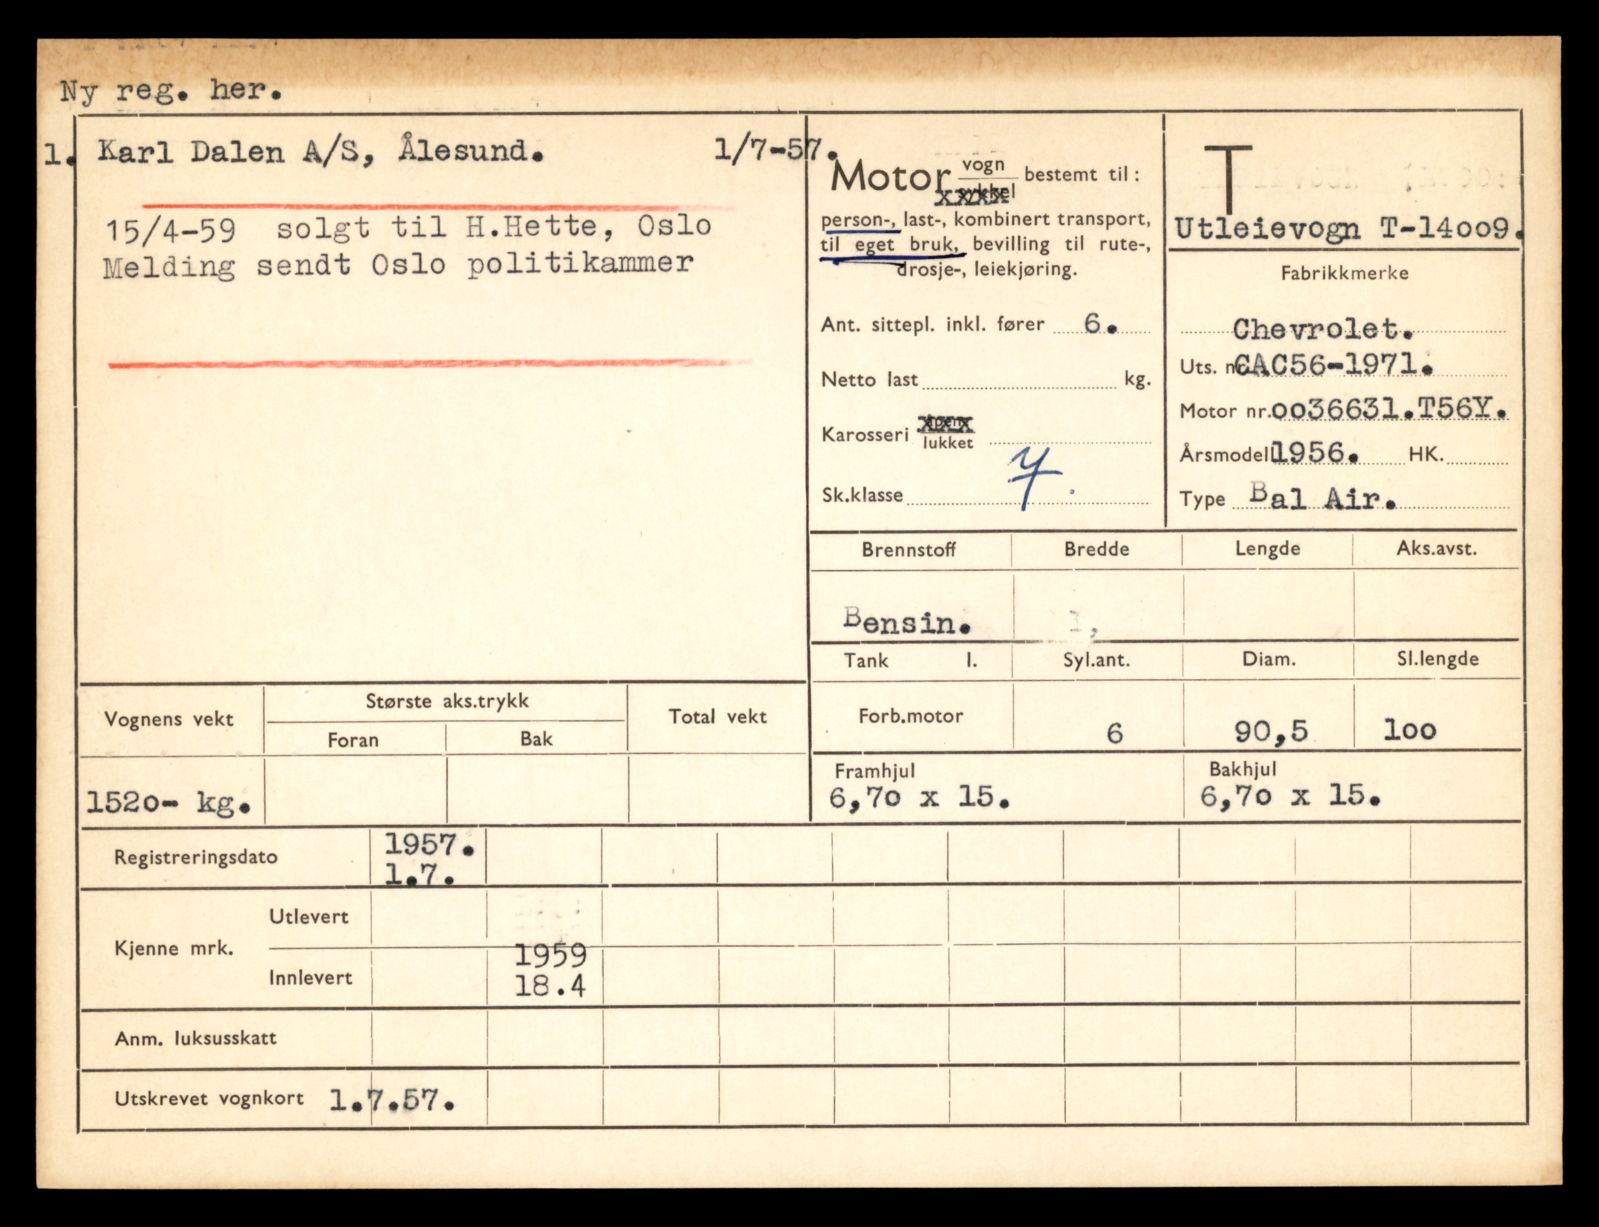 Ny reg. her.
1. Karl Dalen A/S, Ålesund. 1/7-57.
15/4-59 solgt til H.Hette, Oslo
Melding sendt Oslo politikammer
Motor vogn bestemt til:
person-, last-, kombinert transport,
til eget bruk, bevilling til rute-,
drosje-, leiekjøring.
Ant. sittepl. inkl. fører 6.
Netto last kg.
Karosseri
lukket
Sk.klasse 7.
T
Utleievogn T-14oo9.
Fabrikkmerke
Chevrolet.
Uts. nr. CAC56-1971.
Motor nr. oo36631.T56Y.
Årsmodell 1956. HK.
Type Bal Air.
Brennstoff Bredde Lengde Aks.avst.
Bensin. 1,
Tank l. Syl.ant. Diam. Sl.lengde
Forb.motor 6 90,5 loo
Framhjul Bakhjul
6,7o x 15. 6,7o x 15.
Vognens vekt Største aks.trykk Total vekt
Foran Bak
152o- kg.
Registreringsdato 1957.
1.7.
Kjenne mrk. Utlevert
Innlevert 1959
18.4
Anm. luksusskatt
Utskrevet vognkort 1.7.57.